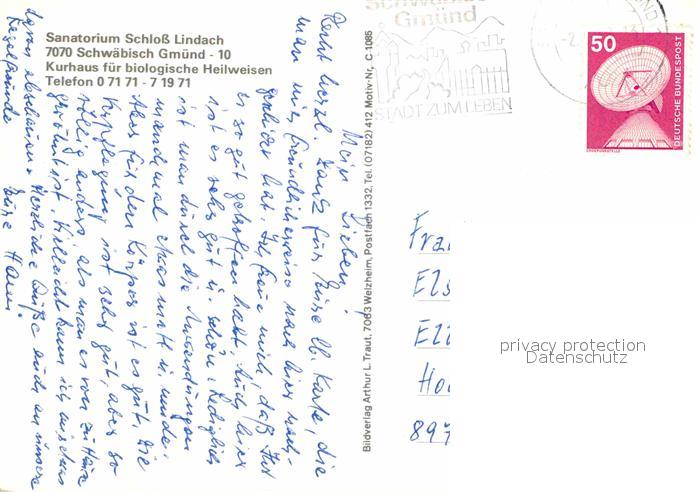 Sanatorium Schloß Lindach
7070 Schwäbisch Gmünd - 10
Kurhaus für biologische Heilweisen
Telefon 0 71 71 - 7 19 71
Mein Lieben!
Recht herzl. Dank für Eure lb. Karte, die
man mir freundlicherweise nach hier nach-
gesendet hat. Ich freue mich, daß Ihr
es so gut getroffen habt. Auch hier
ist es sehr gut u. schön. Lediglich
ist man durch die Anwendungen
manchmal etwas matt u. müde.
Aber für den Körper ist es gut. Die
Verpflegung ist sehr gut, aber so
völlig anders als man es von zu Hause
gewöhnt ist. Vielleicht kann ich mir etwas
davon
Herzliche Grüße auch an unsere
Kegelfreunde Eure
Bildverlag Arthur L. Traut, 7063 Welzheim, Postfach 1332, Tel. (07182) 412 Motiv-Nr. C 1085
Schwäbisch
Gmünd
STADT ZUM LEBEN
50
DEUTSCHE BUNDESPOST
ERDEFUNKSTELLE
Fra
Els
Ell
Ho
897
privacy protection
Datenschutz